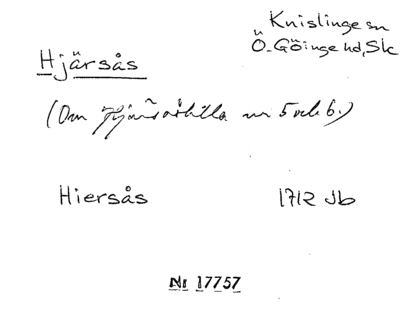 Knislinge sn
Ö. Göinge hd, Sk
Hjärsås
(Om Hjärsåslilla nr 5 och 6.)
Hiersås 1712 Jb
Nr 17757